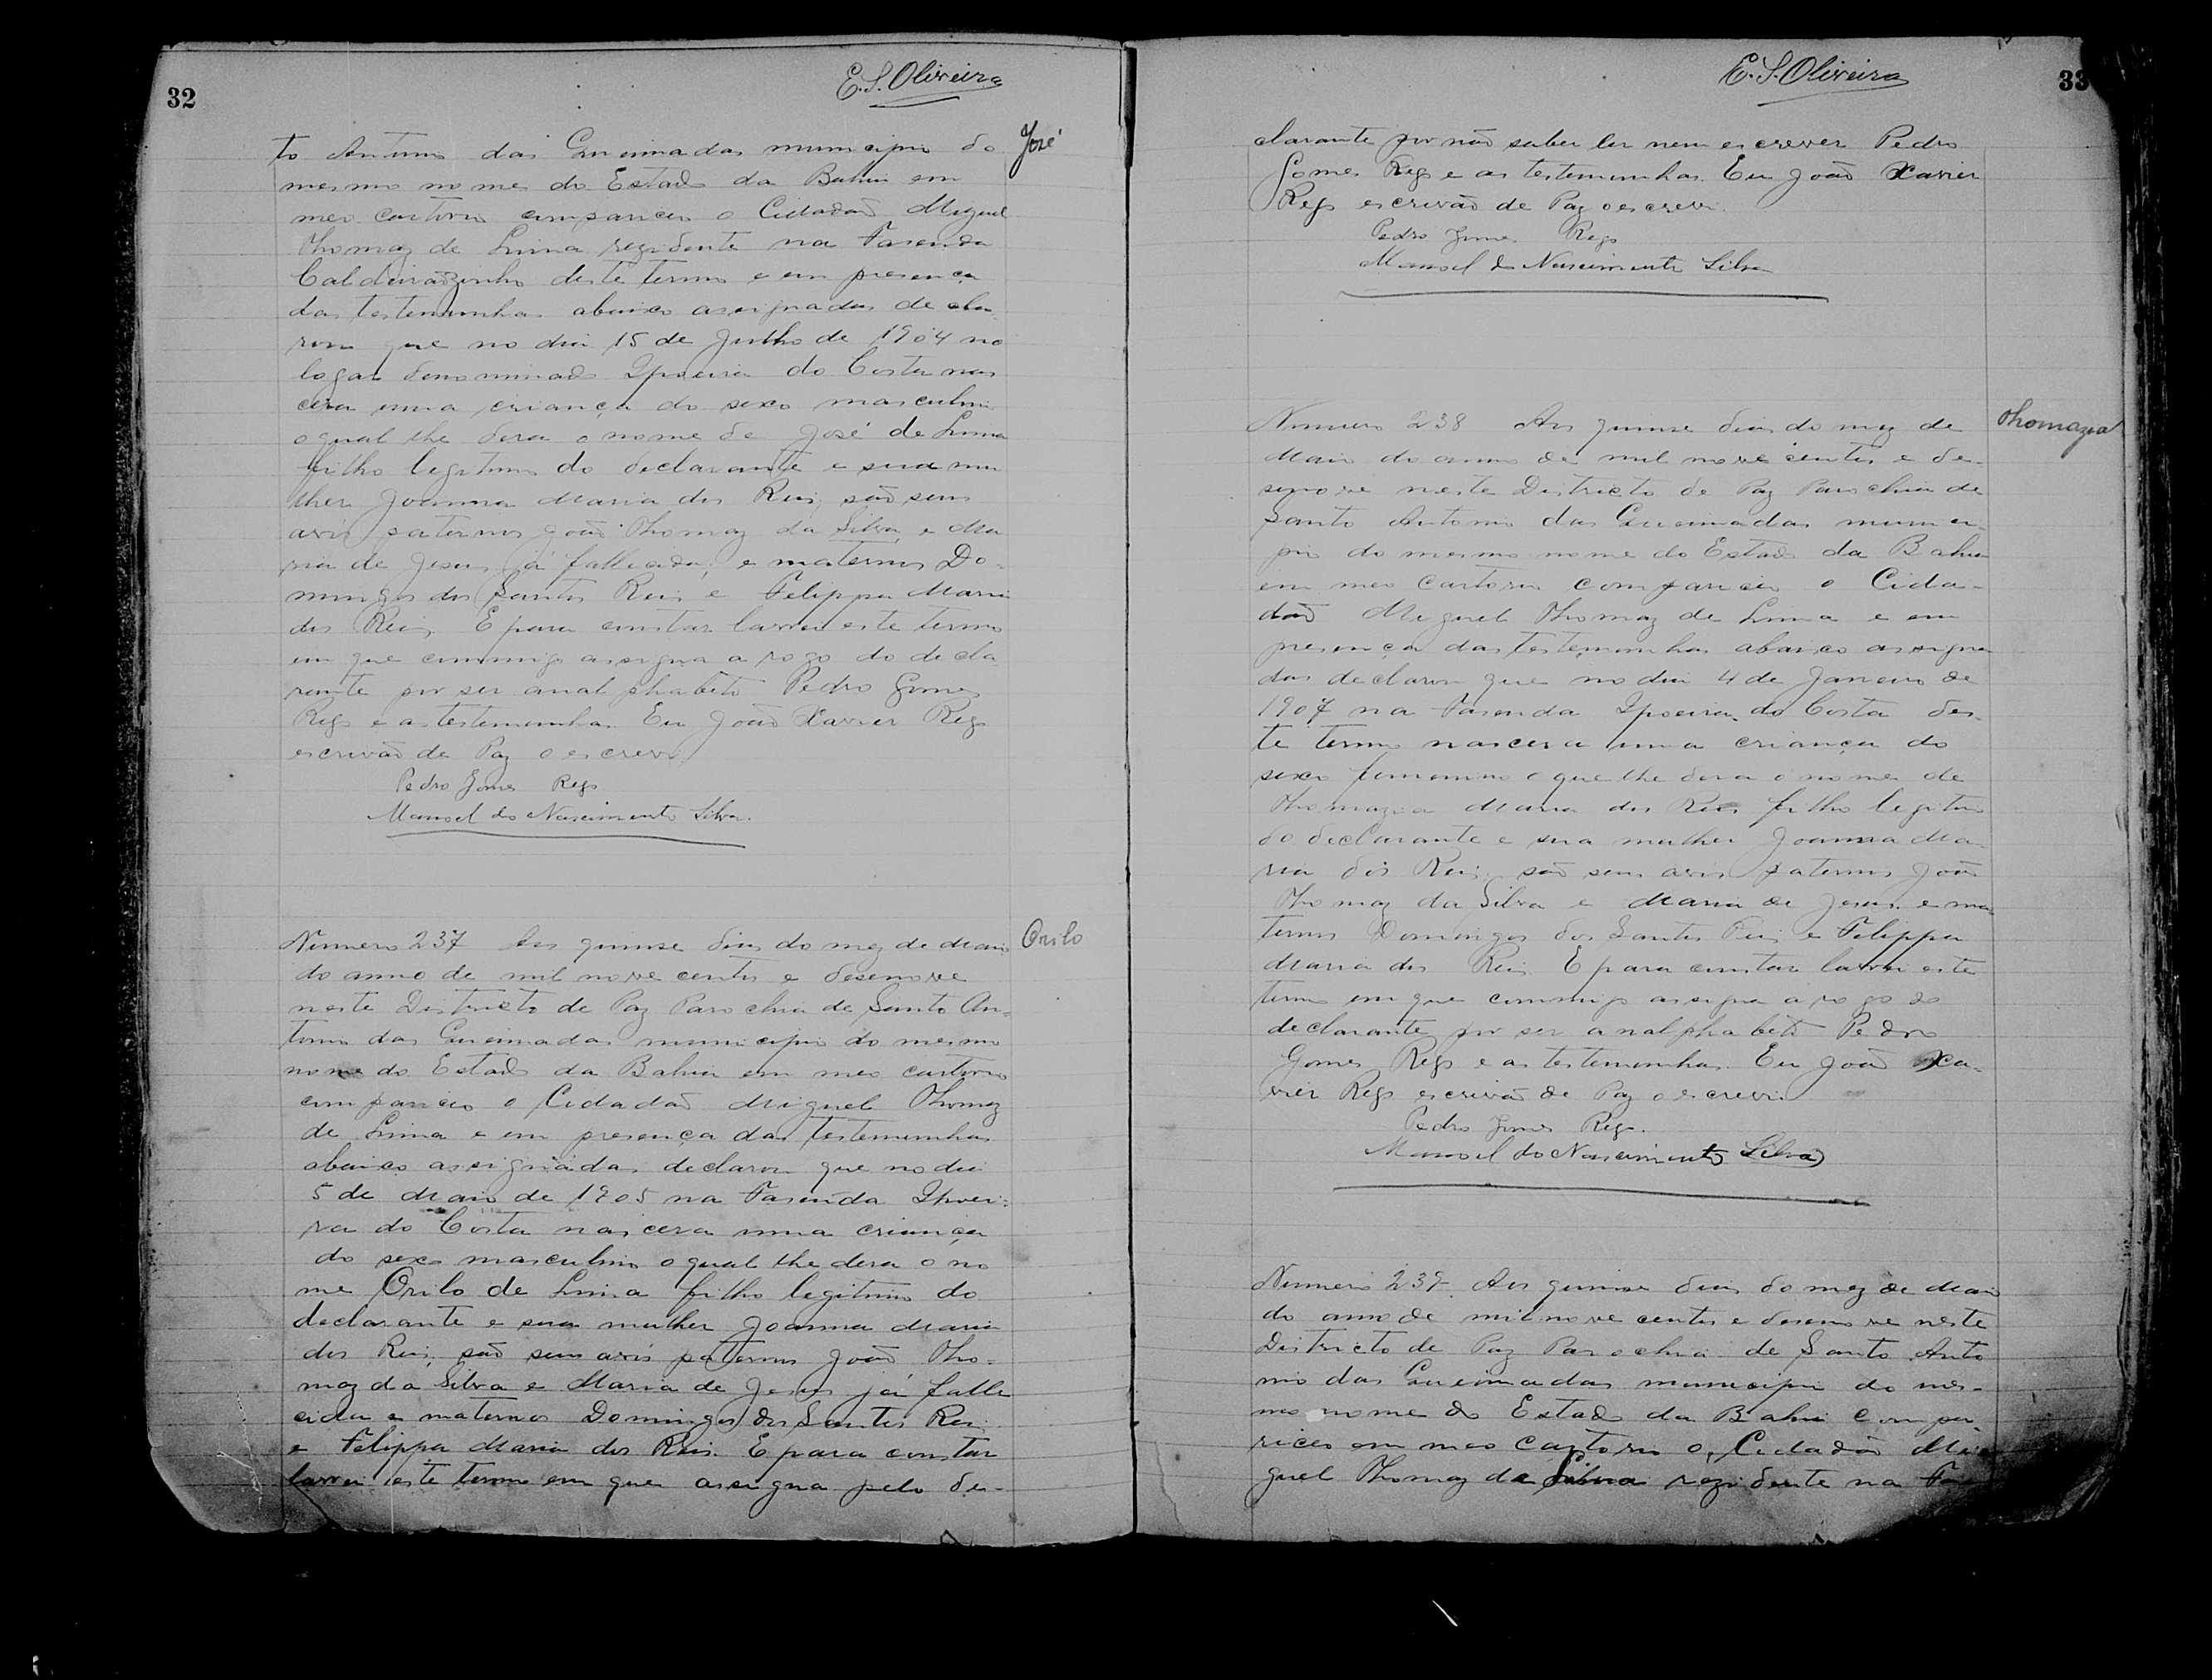 32
E. S. Oliveira
to Antonio das Queimadas municipio do
José
mesmo nome do Estado da Bahia em
meo cartorio compareceo o Cidadaõ Miguel
Thomaz de Lima rezidente na Fasenda
Caldeiraõzinho deste termo e em presença
das testemunhas abaixo assignadas decla
rou que no dia 15 de Julho de 1904 no
logar denominado Ipoeira do Costa nas
cera uma criança do sexo masculino
o qual lhe dera o nome de José de Lima
filho legitimo do declarante e sua mu
lher Joanna Maria dos Reis, saõ seus
avós paternos Joaõ Thomaz da Silva e Ma
ria de Jesus, já fallecida, e maternos Do-
mingos dos Santos Reis e Felippa Maria
dos Reis. E para constar lavrei este termo
em que commigo assigna a rogo do decla
rante por ser analphabeto Pedro Gomes
Rego e as testemunhas. Eu Joaõ Xavier Rego
escrivaõ de Paz o escrevi
Pedro Gomes Rego
Manoel do Nascimento Silva.
Numero 237 Aos quinse dias do mez de Maio
Orilo
do anno de mil nove centos e desenove
neste Districto de Paz Parochia de Santo An-
tonio das Queimadas municipio do mesmo
nome do Estado da Bahia em meo cartorio
compareceo o Cidadaõ Miguel Thomaz
de Lima e em presença das testemunhas
abaixo assignadas declarou que no dia
5 de Maio de 1905 na Fasenda Ipoei-
ra do Costa nascera uma criança
do sexo masculino o qual lhe dera o no
me Orilo de Lima filho legitimo do
declarante e sua mulher Joanna Maria
dos Reis, saõ seus avós paternos Joaõ Tho-
maz da Silva e Maria de Jesus já falle
cida e maternos Domingos dos Santos Reis
e Felippa Maria dos Reis. E para constar
lavrei este termo em que assigna pelo de-
E. S. Oliveira
33
clarante por naõ saber ler nem escrever Pedro
Gomes Rego e as testemunhas. Eu Joaõ Xavier
Rego escrivaõ de Paz o escrevi.
Pedro Gomes Rego
Manoel do Nascimento Silva
Numero 238 Aos quinse dias do mez de
Thomazia
Maio do anno de mil nove centos e de-
senove neste Districto de Paz Parochia de
Santo Antonio das Queimadas munici-
pio do mesmo nome do Estado da Bahia
em meo cartorio compareceo o Cida-
daõ Miguel Thomaz de Lima e em
presença das testemunhas abaixo assigna
das declarou que no dia 4 de Janeiro de
1907 na Fasenda Ipoeira do Costa des-
te termo nascera uma criança do
sexo femenino o que lhe dera o nome de
Thomazia Maria dos Reis filho legitimo
do declarante e sua mulher Joanna Ma-
ria dos Reis, saõ seus avós paternos Joaõ
Thomaz da Silva e Maria de Jesus e ma-
ternos Domingos dos Santos Reis e Felippa
Maria dos Reis E para constar lavrei este
termo em que commigo assigna a rogo do
declarante por ser analphabeto Pedro
Gomes Rego e as testemunhas. Eu Joaõ Xa-
vier Rego escrivaõ de Paz o escrevi.
Pedro Gomes Rego.
Manoel do Nascimento Silva
Numero 239 Aos quinse dias do mez de Maio
do anno de mil nove centos e desenove neste
Districto de Paz Parochia de Santo Anto
nio das Queimadas municipio do mes-
mo nome do Estado da Bahia compa-
receo em meo cartorio o Cidadaõ Mi
guel Thomaz de rezidente na Fa